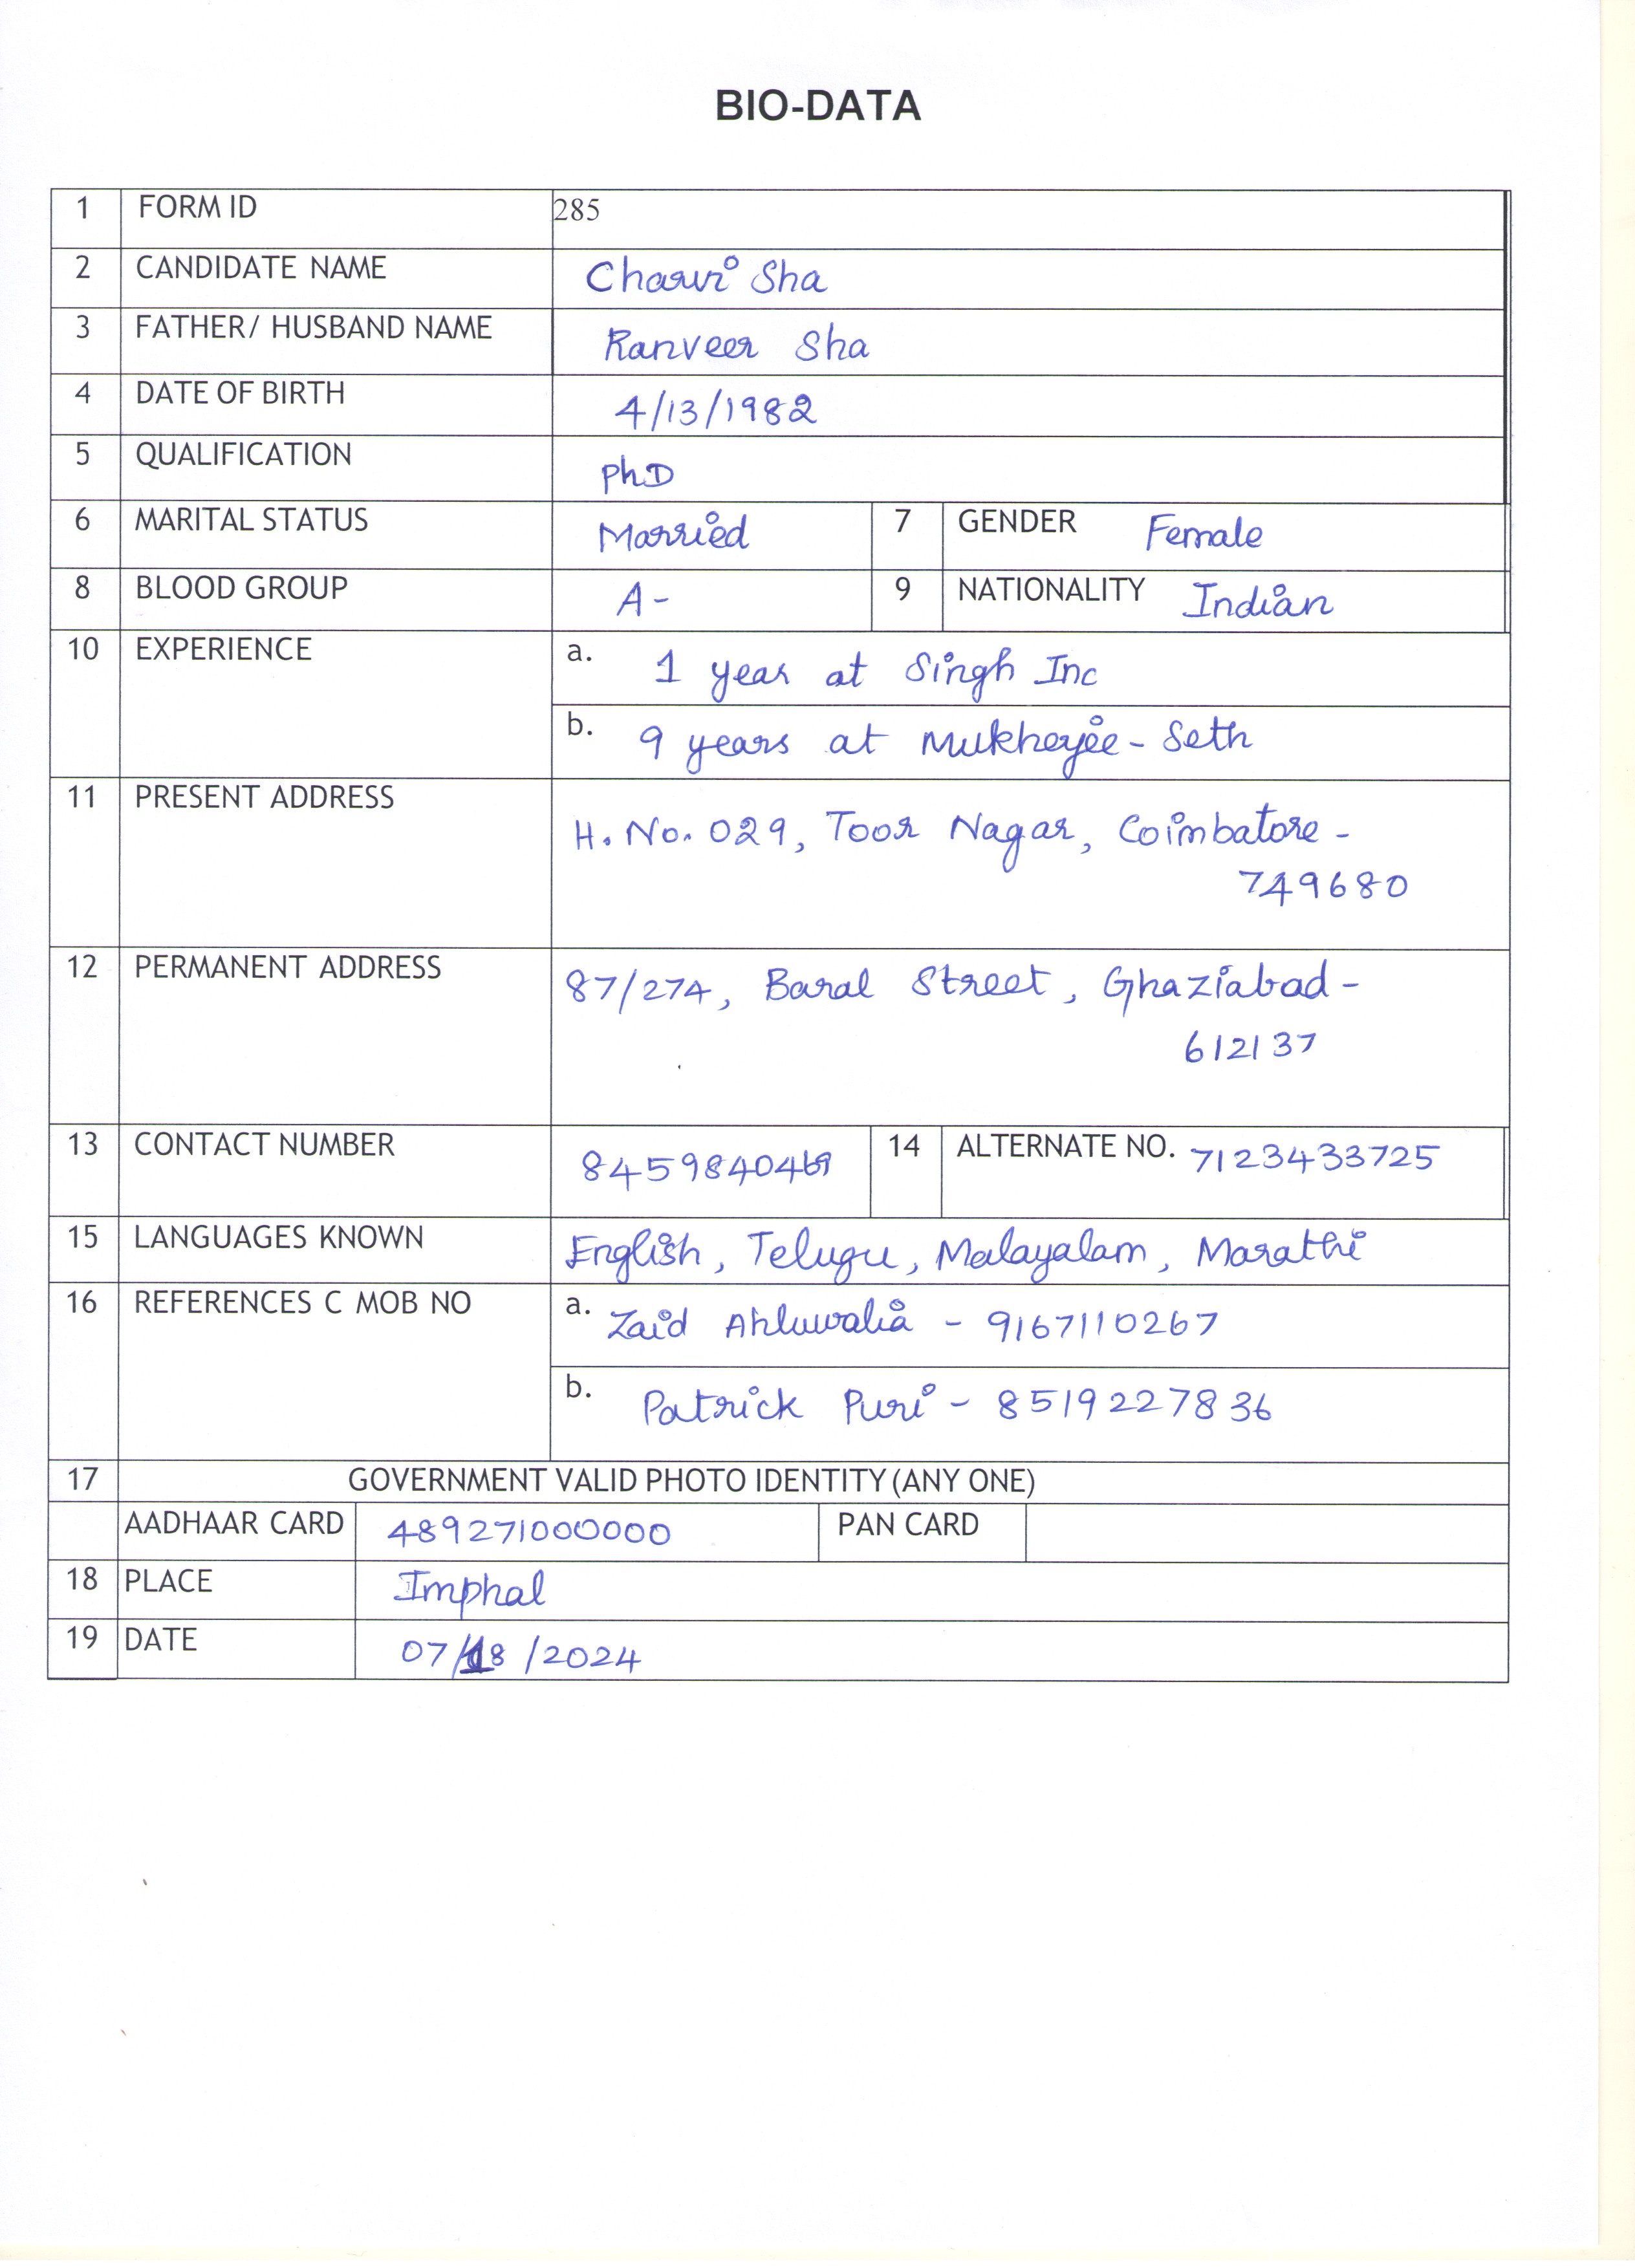 BIO-DATA
1 FORM ID 285
2 CANDIDATE NAME Charvi Sha
3 FATHER/ HUSBAND NAME Ranveer Sha
4 DATE OF BIRTH 4/13/1982
5 QUALIFICATION PhD
6 MARITAL STATUS Married 7 GENDER Female
8 BLOOD GROUP A- 9 NATIONALITY Indian
10 EXPERIENCE a. 1 year at Singh Inc
b. 9 years at Mukherjee - Seth
11 PRESENT ADDRESS
H. No. 029, Toor Nagar, Coimbatore -
749680
12 PERMANENT ADDRESS 87/274, Baral Street, Ghaziabad -
612137
13 CONTACT NUMBER 14 ALTERNATE NO. 7123433725
15 LANGUAGES KNOWN English, Telugu, Malayalam, Marathi
16 REFERENCES C MOB NO a. Zaid Ahluwalia - 9167110267
b. Patrick Puri - 8519227836
17 GOVERNMENT VALID PHOTO IDENTITY (ANY ONE)
AADHAAR CARD 489271000000 PAN CARD
18 PLACE Imphal
19 DATE 07/18/2024